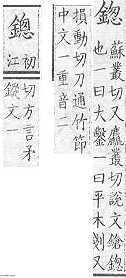 鏓
蘇叢切又麤叢切說文鎗鏓
也一曰大鑿一曰平木剗又
損動切刀通竹節
中文一重音二
鏓
初江
切方言矛
鏦文一